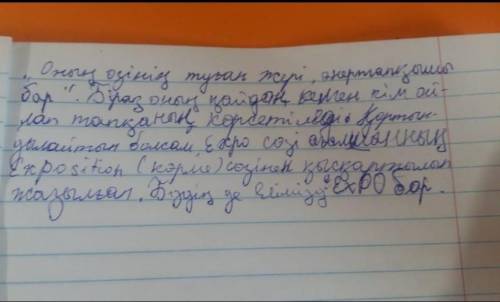 „Оның өзінің туған жері, өнертапқышы
бар". Бірақ оның қайдан келген кім ой-
лап тапқаның көрсетілмеді. Қортын-
дылайтын болсам Expo сөзі ағылшынның
Exposition (көрме) сөзінен қысқартылып
жазылған. Біздің де елімізде EXPO бар.